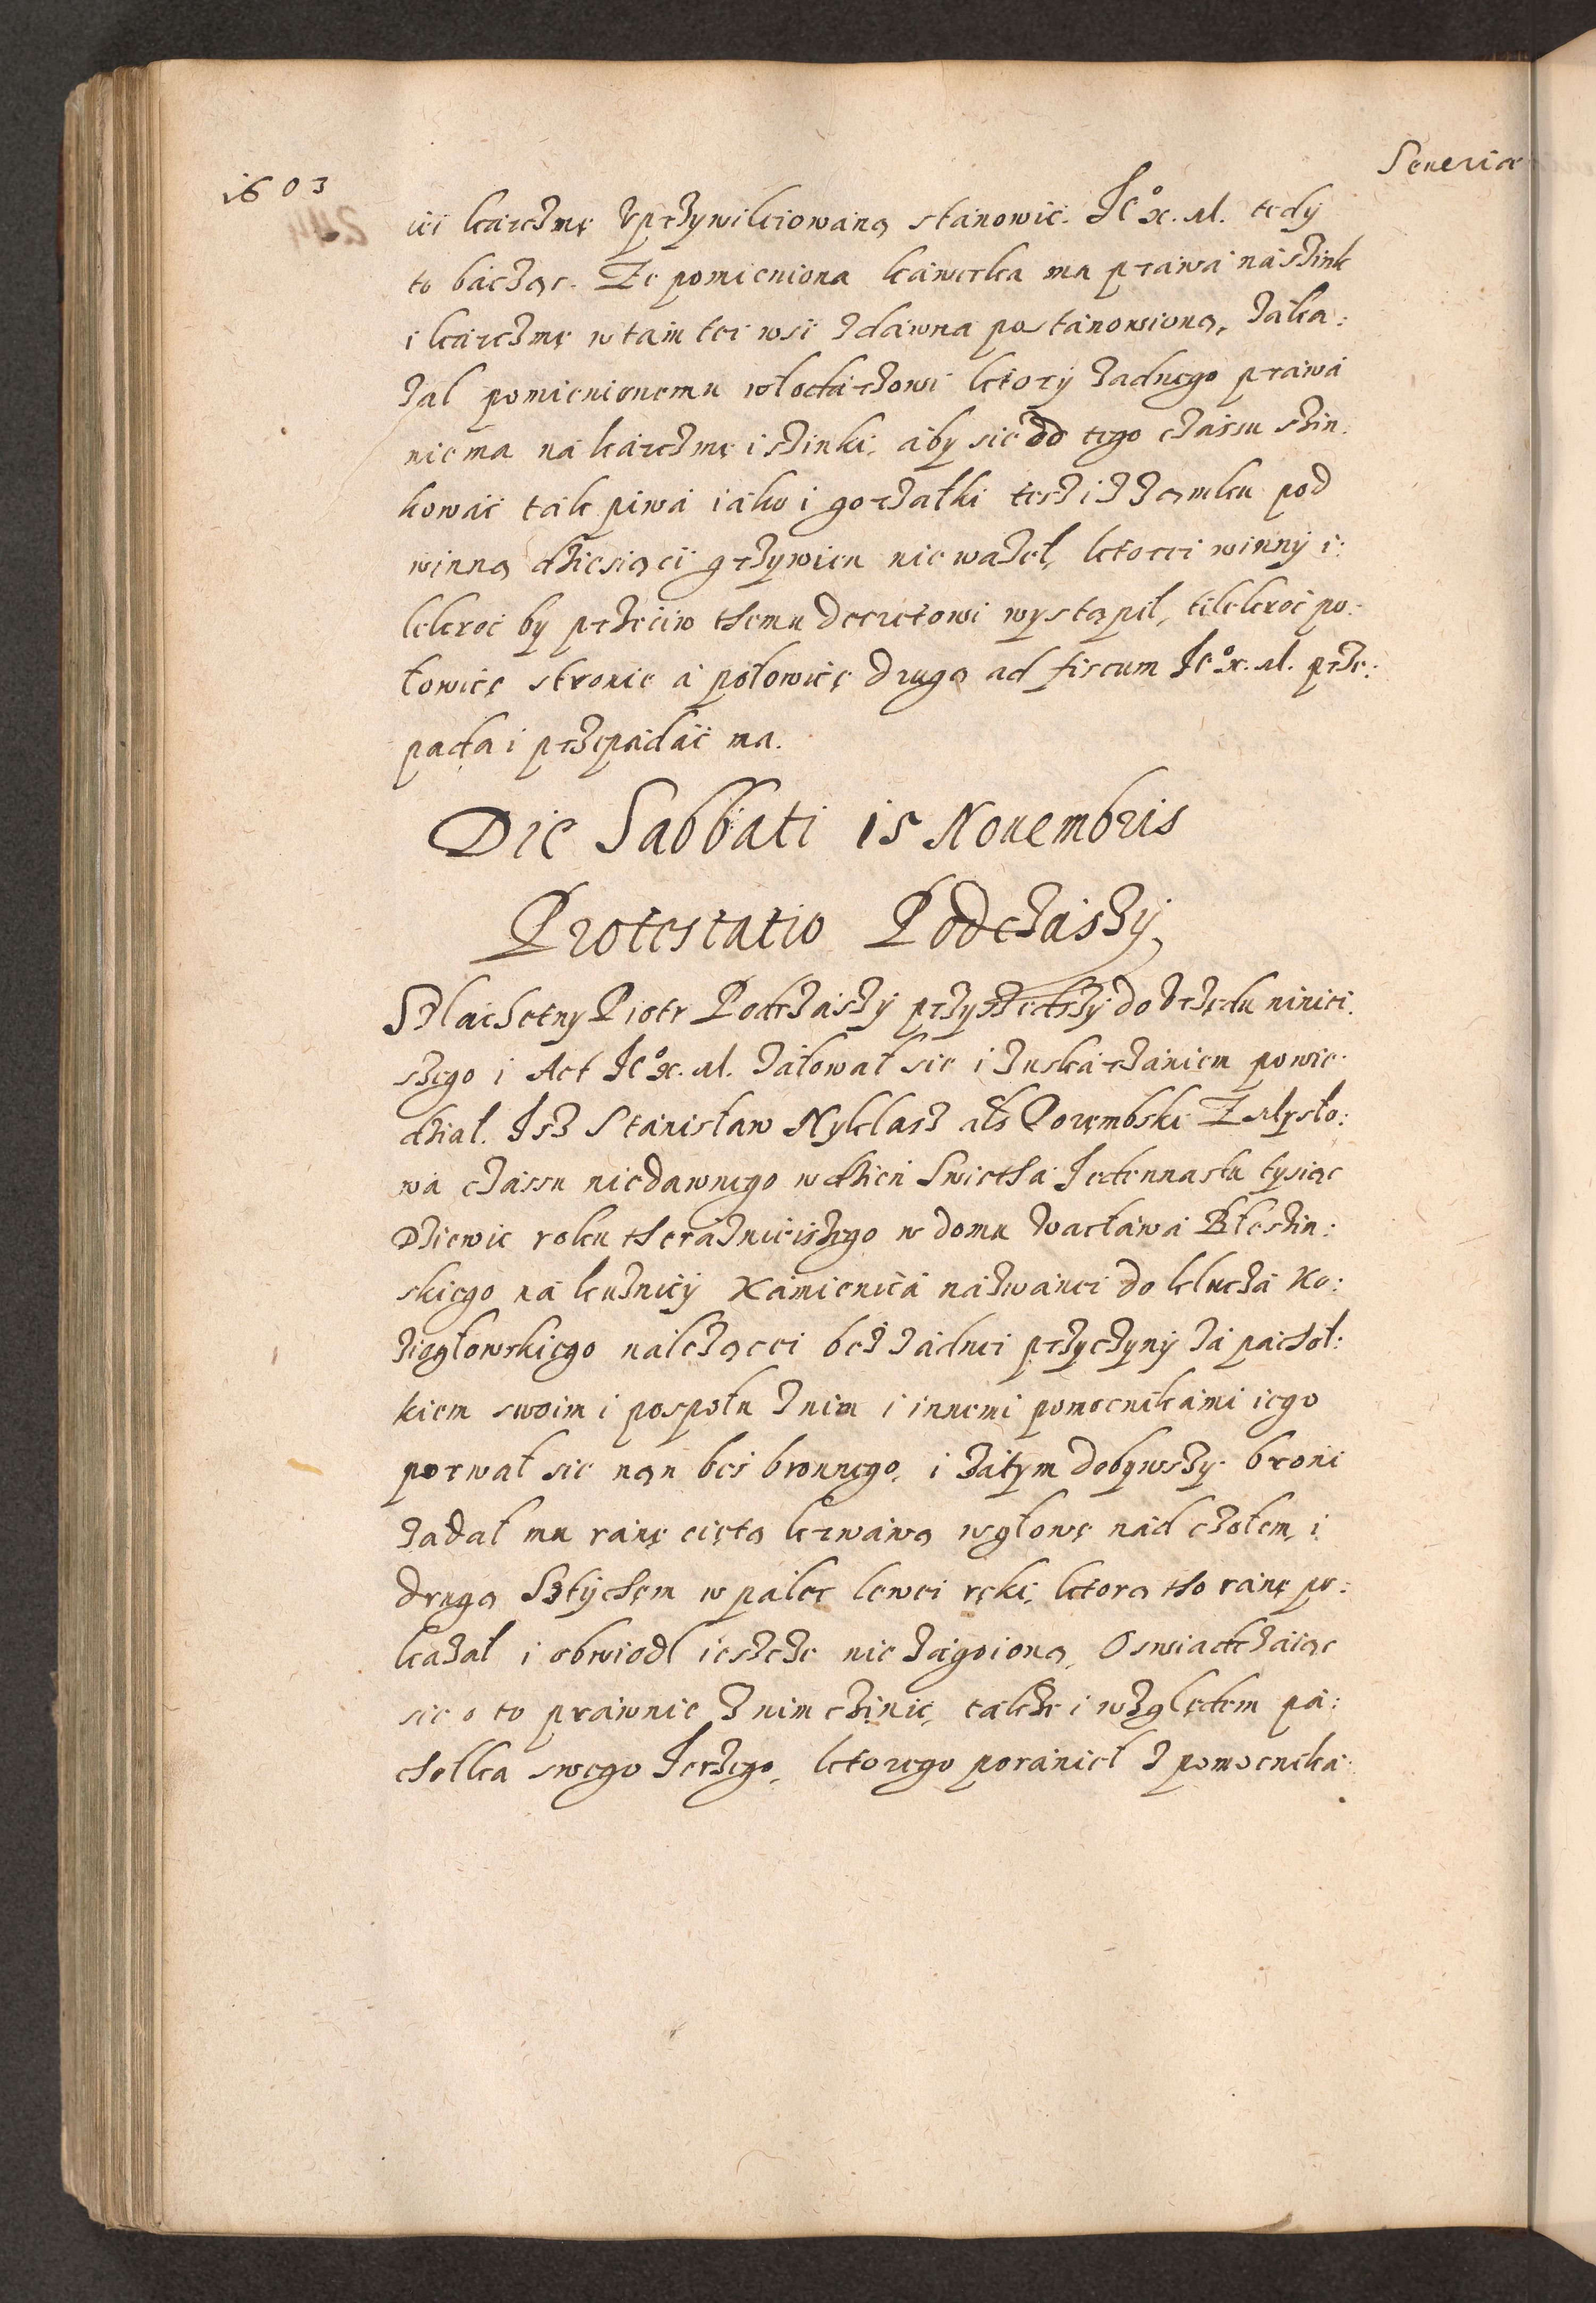 1603
Seueriæ
iei karczmę vprzywileiowaną stanowić. Je° x. M. tedÿ
to bacząc. Ze pomieniona kawerka ma prawa na szink
i karczmę w tam tei wsi zdawna postanowioną, zaka:
zal pomienionemu włodarzowi ktorÿ zadnego prawa
nie ma na karczmę i szinki, aby sie od tego czassu szin:
kować tak piwa iako i gorzałki tesz i z zamku pod
winną dziesiąci grzywien nie wazeł, ktorei winnÿ i:
lekroć by przeciw themu decretowi wystąpił, tilekroć po:
łowicę stronie a połowicę drugą ad fiscum Je° x. M. prze:
pada i przepadać ma.
Die Sabbati 15 Nouembris
Protestatio Podczaszÿ
Szlachetny Piotr Podczaszÿ przyszedszÿ do vrzędu niniei:
szego i Act Je° x. M. załował sie i z uskarzaniem powie:
dział. Isz Stanisław Nyklasz als Porembski Z Mysło:
wa czassu niedawnego w dzień Swietha Jedennastu tysiąc
Dziewic roku theraznieiszego w domu Wacława Bleszin:
skiego na kuznicÿ Kamienica nazwanei do klucza Ko:
ziegłowskiego nalezącei bez zadnei przyczynÿ za pachoł:
kiem swoim i pospołu z nim i innemi pomocnikami iego
porwał sie nan bes bronnego, i zatym dobywszy broni
zadał mu ranę ciętą krwawą w głowę nad czołem, i
drugą Sztÿchem w palec lewei ręki, ktorą tho ranę po:
kazał i obwiodl ieszcze nie zagoioną, Oswiadczaiąc
sie o to prawnie z nim czinić, takze i względem pa:
chołka swego Jerzego, ktorego poranieł z pomocnika: